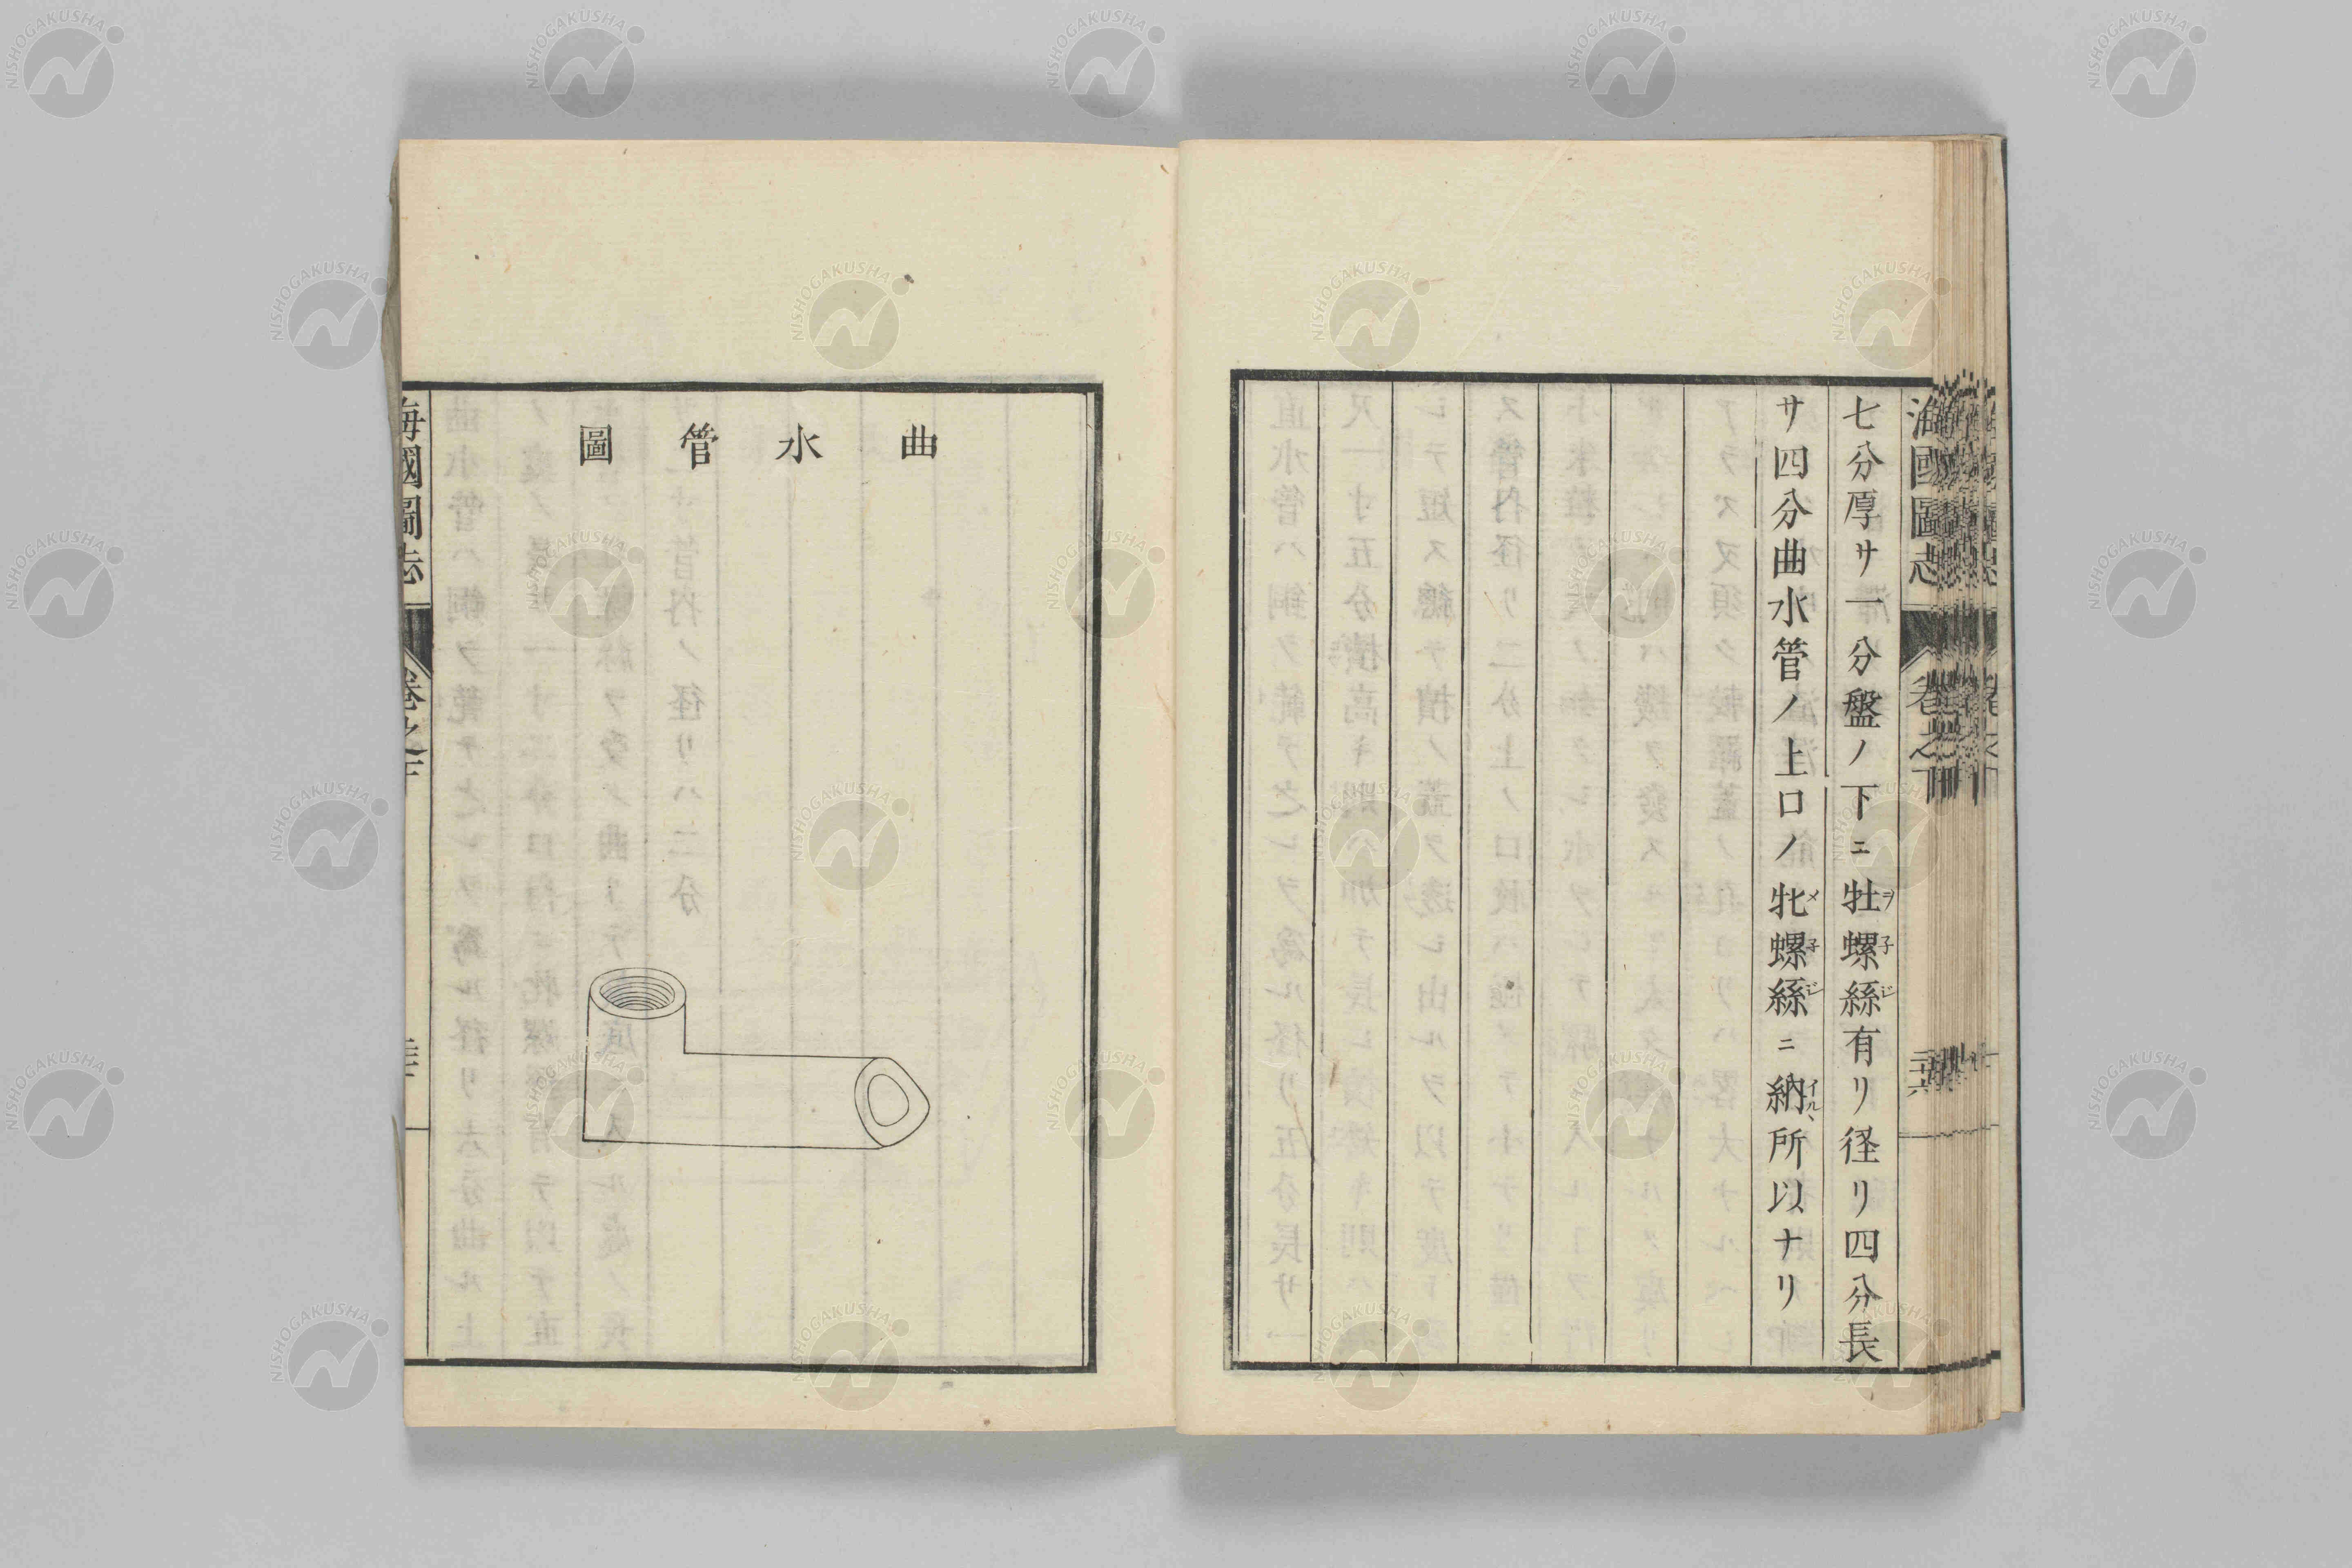 七分厚サ一分盤ノ下ニ牡螺絲有リ径リ四分長
サ四分曲水管ノ上口ノ牝螺絲ニ納所以ナリ
ヲ子ジ
メ子ジ
イルヽ
海國圖志
卷之下
二十六
曲水管圖
海國圖志
卷之下
NISHOGAKUSHA